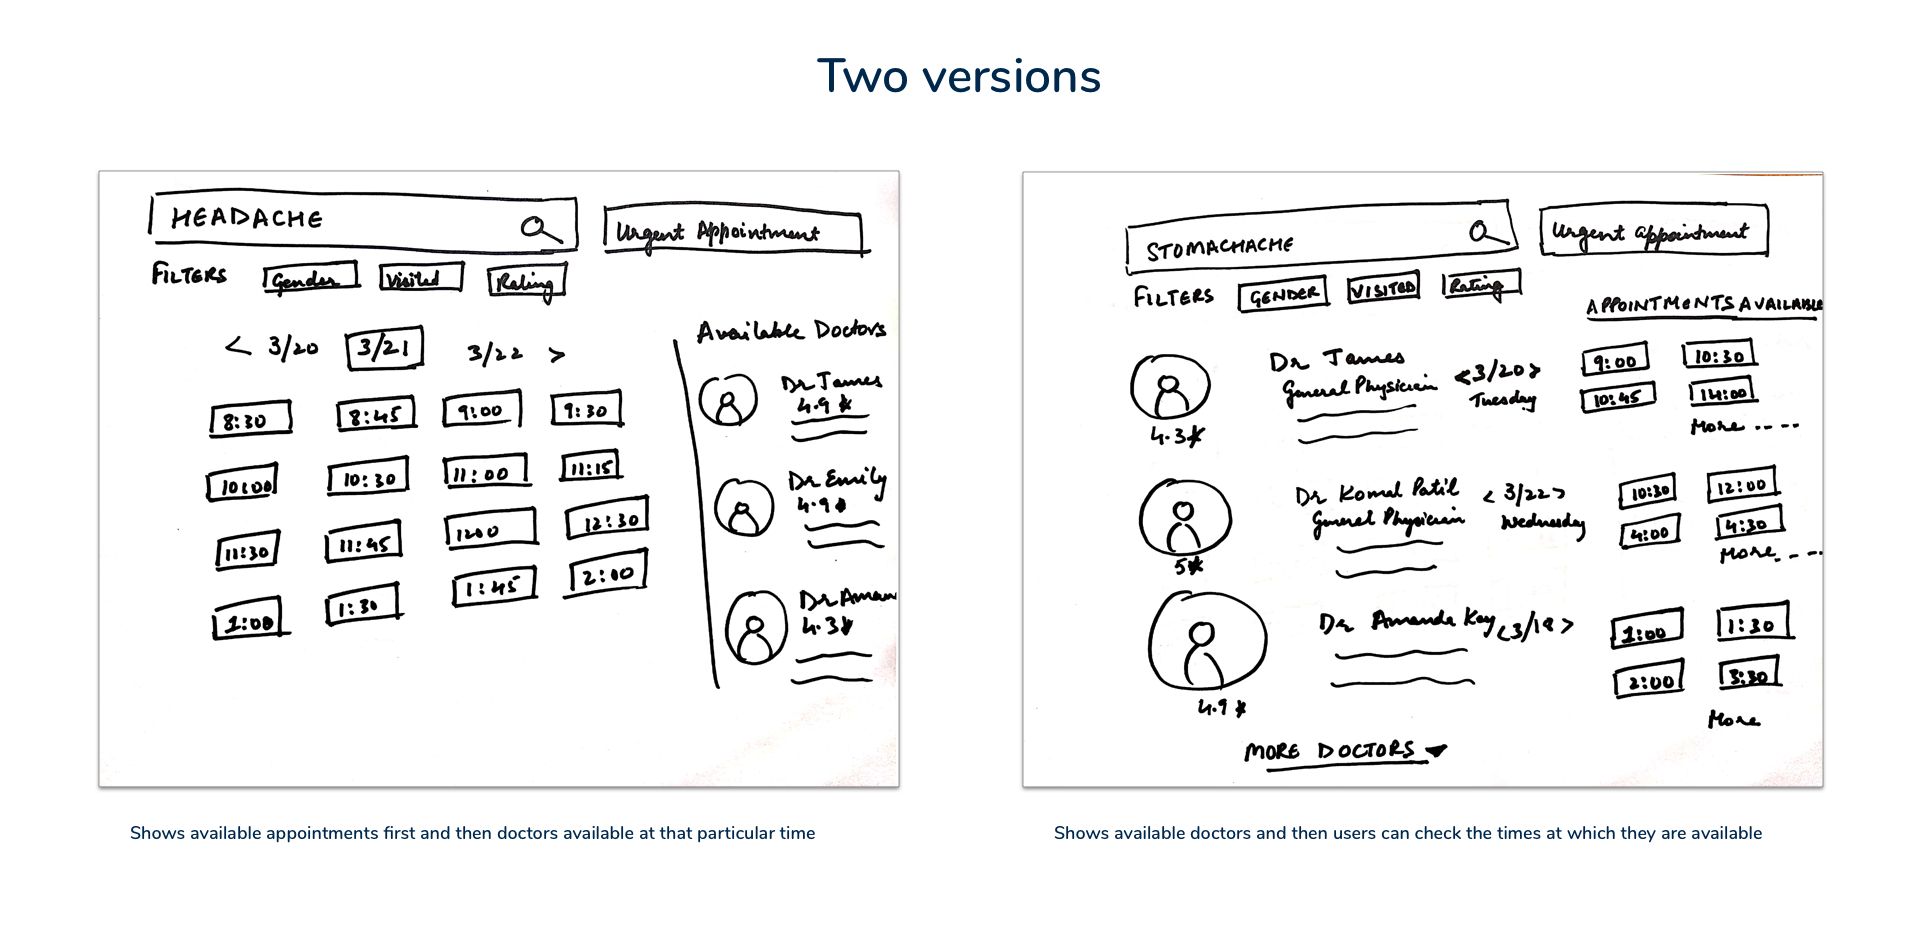 Two versions
HEADACHE
Urgent Appointment
FILTERS Gender Visited Rating
< 3/20 3/21 3/22 >
8:30 8:45 9:00 9:30
10:00 10:30 11:00 11:15
11:30 11:45 1200 12:30
1:00 1:30 1:45 2:00
Available Doctors
Dr James
4.9 *
Dr Emily
4.9 *
Dr Aman
4.3 *
Shows available appointments first and then doctors available at that particular time
STOMACHACHE
Urgent appointment
FILTERS GENDER VISITED Rating
APPOINTMENTS AVAILABLE
Dr James
General Physician
4.3 *
<3/20>
Tuesday
9:00 10:30
10:45 14:00
More ....
Dr Komal Patil
General Physician
5 *
<3/22>
Wednesday
10:30 12:00
4:00 4:30
More....
Dr Amanda Kay
4.9 *
<3/18>
1:00 1:30
2:00 3:30
More
MORE DOCTORS
Shows available doctors and then users can check the times at which they are available